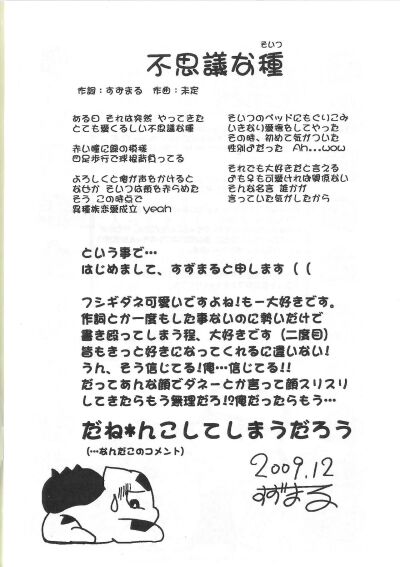 そいつ
不思議な種
作詞：すずまる　作曲：未定
ある日 それは突然 やってきた
とても愛くるしい不思議な種
赤い瞳に緑の模様
四足歩行で球根背負ってる
よろしくと俺が声をかけると
なぜか そいつは頬を赤らめた
そう この時点で
異種族恋愛成立 yeah
そいつのベッドにもぐりこみ
いきなり愛撫をしてやった
その時、初めて気がついた
性別♂だった　Ah...wow
それでも大好きだと言える
♂も♀も可愛ければ関係ない
そんな名言 誰かが
言っていた気がしたから
という事で…
はじめまして、すずまると申します（（
フシギダネ可愛いですよね！もー大好きです。
作詞とか一度もした事ないのに勢いだけで
書き殴ってしまう程、大好きです（二度目）
皆もきっと好きになってくれるに違いない！
うん、そう信じてる！俺…信じてる！！
だってあんな顔でダネーとか言って顔スリスリ
してきたらもう無理だろ！？俺だったらもう…
だね*んこしてしまうだろう
（…なんだこのコメント）
2009.12
すずまる